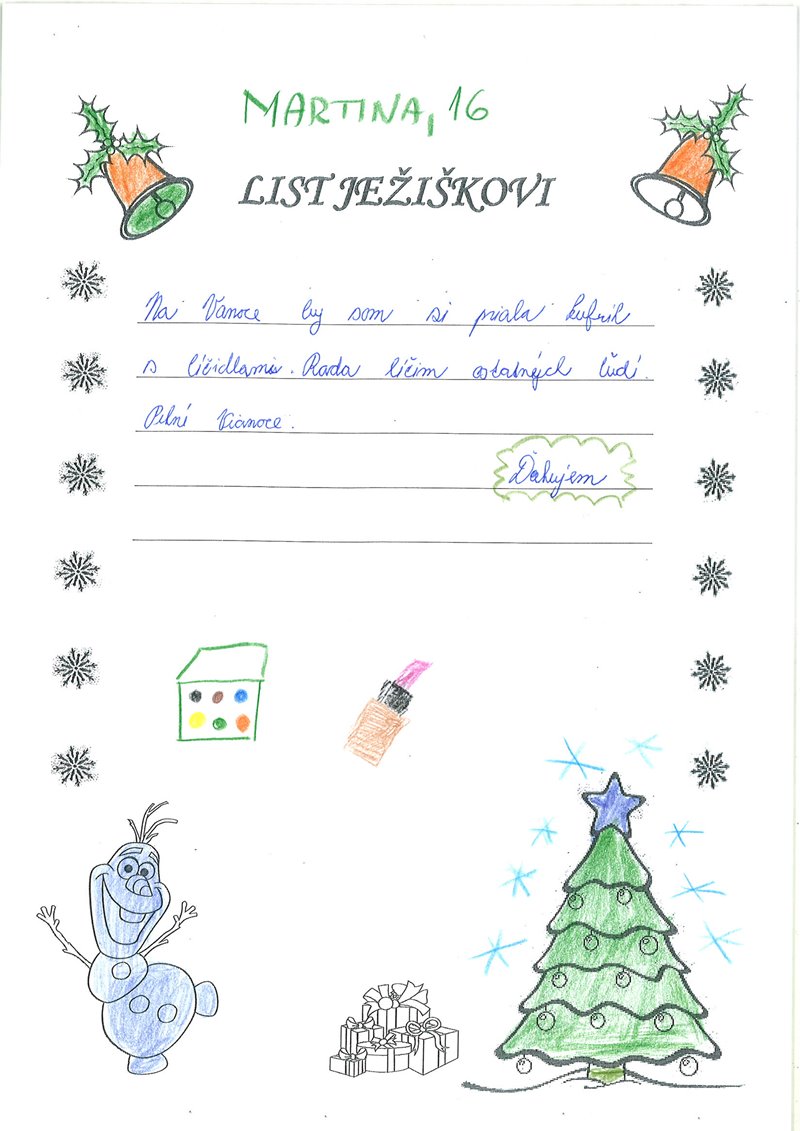 MARTINA, 16
LIST JEŽIŠKOVI
Na Vanoce by som si priala kufrík
s líčidlami. Rada líčim ostatných ľudí.
Pekné Vianoce.
Ďakujem